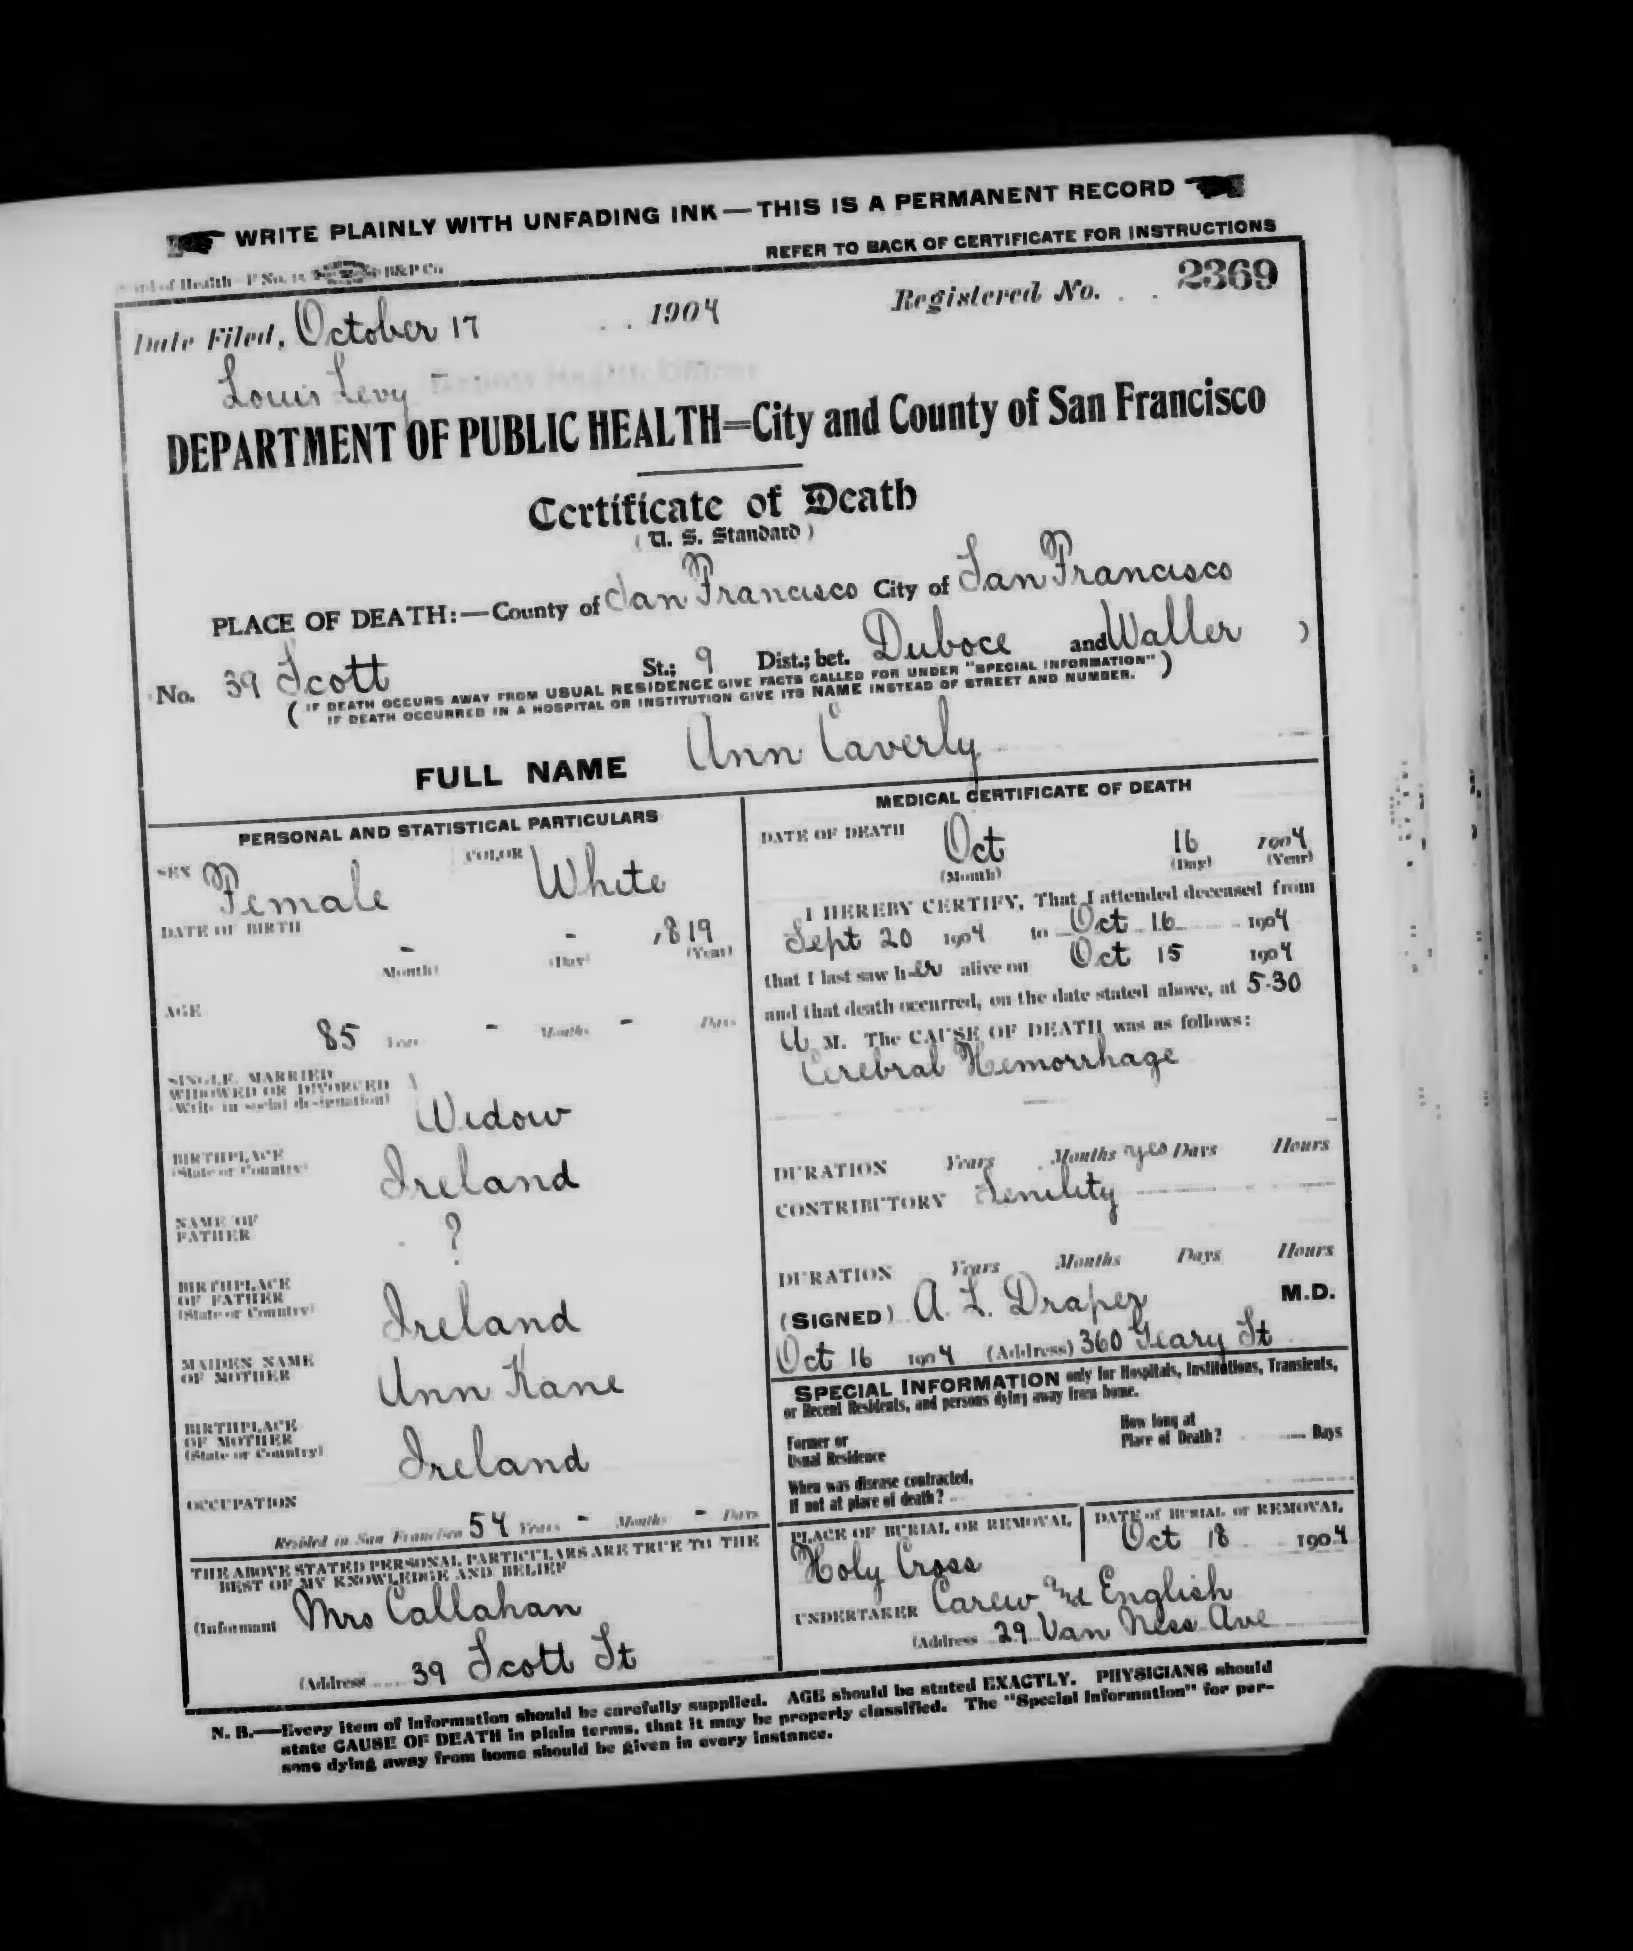 WRITE PLAINLY WITH UNFADING INK—THIS IS A PERMANENT RECORD
REFER TO BACK OF CERTIFICATE FOR INSTRUCTIONS
of Health—F No. 15 B&P Co
Date Filed, October 17 1904 Registered No. 2369
Louis Levy
Deputy Health Officer
DEPARTMENT OF PUBLIC HEALTH=City and County of San Francisco
Certificate of Death
(U. S. Standard)
PLACE OF DEATH:—County of San Francisco City of San Francisco
No. 39 Scott St.; 9 Dist.; bet. Duboce and Waller )
( IF DEATH OCCURS AWAY FROM USUAL RESIDENCE GIVE FACTS CALLED FOR UNDER "SPECIAL INFORMATION" )
IF DEATH OCCURRED IN A HOSPITAL OR INSTITUTION GIVE ITS NAME INSTEAD OF STREET AND NUMBER.
FULL NAME Ann Caverly
PERSONAL AND STATISTICAL PARTICULARS
SEX Female COLOR White
DATE OF BIRTH - - 1819
(Month) (Day) (Year)
AGE
85 Years - Months - Days
SINGLE, MARRIED
WIDOWED OR DIVORCED
(Write in social designation)
Widow
BIRTHPLACE
(State or Country)
Ireland
NAME OF
FATHER
?
BIRTHPLACE
OF FATHER
(State or Country)
Ireland
MAIDEN NAME
OF MOTHER
Ann Kane
BIRTHPLACE
OF MOTHER
(State or Country)
Ireland
OCCUPATION
Resided in San Francisco 54 Years - Months - Days
THE ABOVE STATED PERSONAL PARTICULARS ARE TRUE TO THE
BEST OF MY KNOWLEDGE AND BELIEF
(Informant Mrs Callahan
(Address 39 Scott St
MEDICAL CERTIFICATE OF DEATH
DATE OF DEATH Oct 16 1904
(Month) (Day) (Year)
I HEREBY CERTIFY, That I attended deceased from
Sept 20 1904 to Oct 16 1904
that I last saw her alive on Oct 15 1904
and that death occurred, on the date stated above, at 5-30
A M. The CAUSE OF DEATH was as follows:
Cerebral Hemorrhage
DURATION Years Months Days Hours
CONTRIBUTORY Senility
DURATION Years Months Days Hours
(SIGNED) A. L. Draper M.D.
Oct 16 1904 (Address) 360 Geary St
SPECIAL INFORMATION only for Hospitals, Institutions, Transients,
or Recent Residents, and persons dying away from home.
Former or
Usual Residence
How long at
Place of Death? Days
When was disease contracted,
If not at place of death?
PLACE OF BURIAL OR REMOVAL
Holy Cross
DATE of BURIAL or REMOVAL
Oct 18 1904
UNDERTAKER Carew and English
(Address 29 Van Ness Ave
N. B.—Every item of information should be carefully supplied. AGE should be stated EXACTLY. PHYSICIANS should
state CAUSE OF DEATH in plain terms, that it may be properly classified. The "Special Information" for per-
sons dying away from home should be given in every instance.